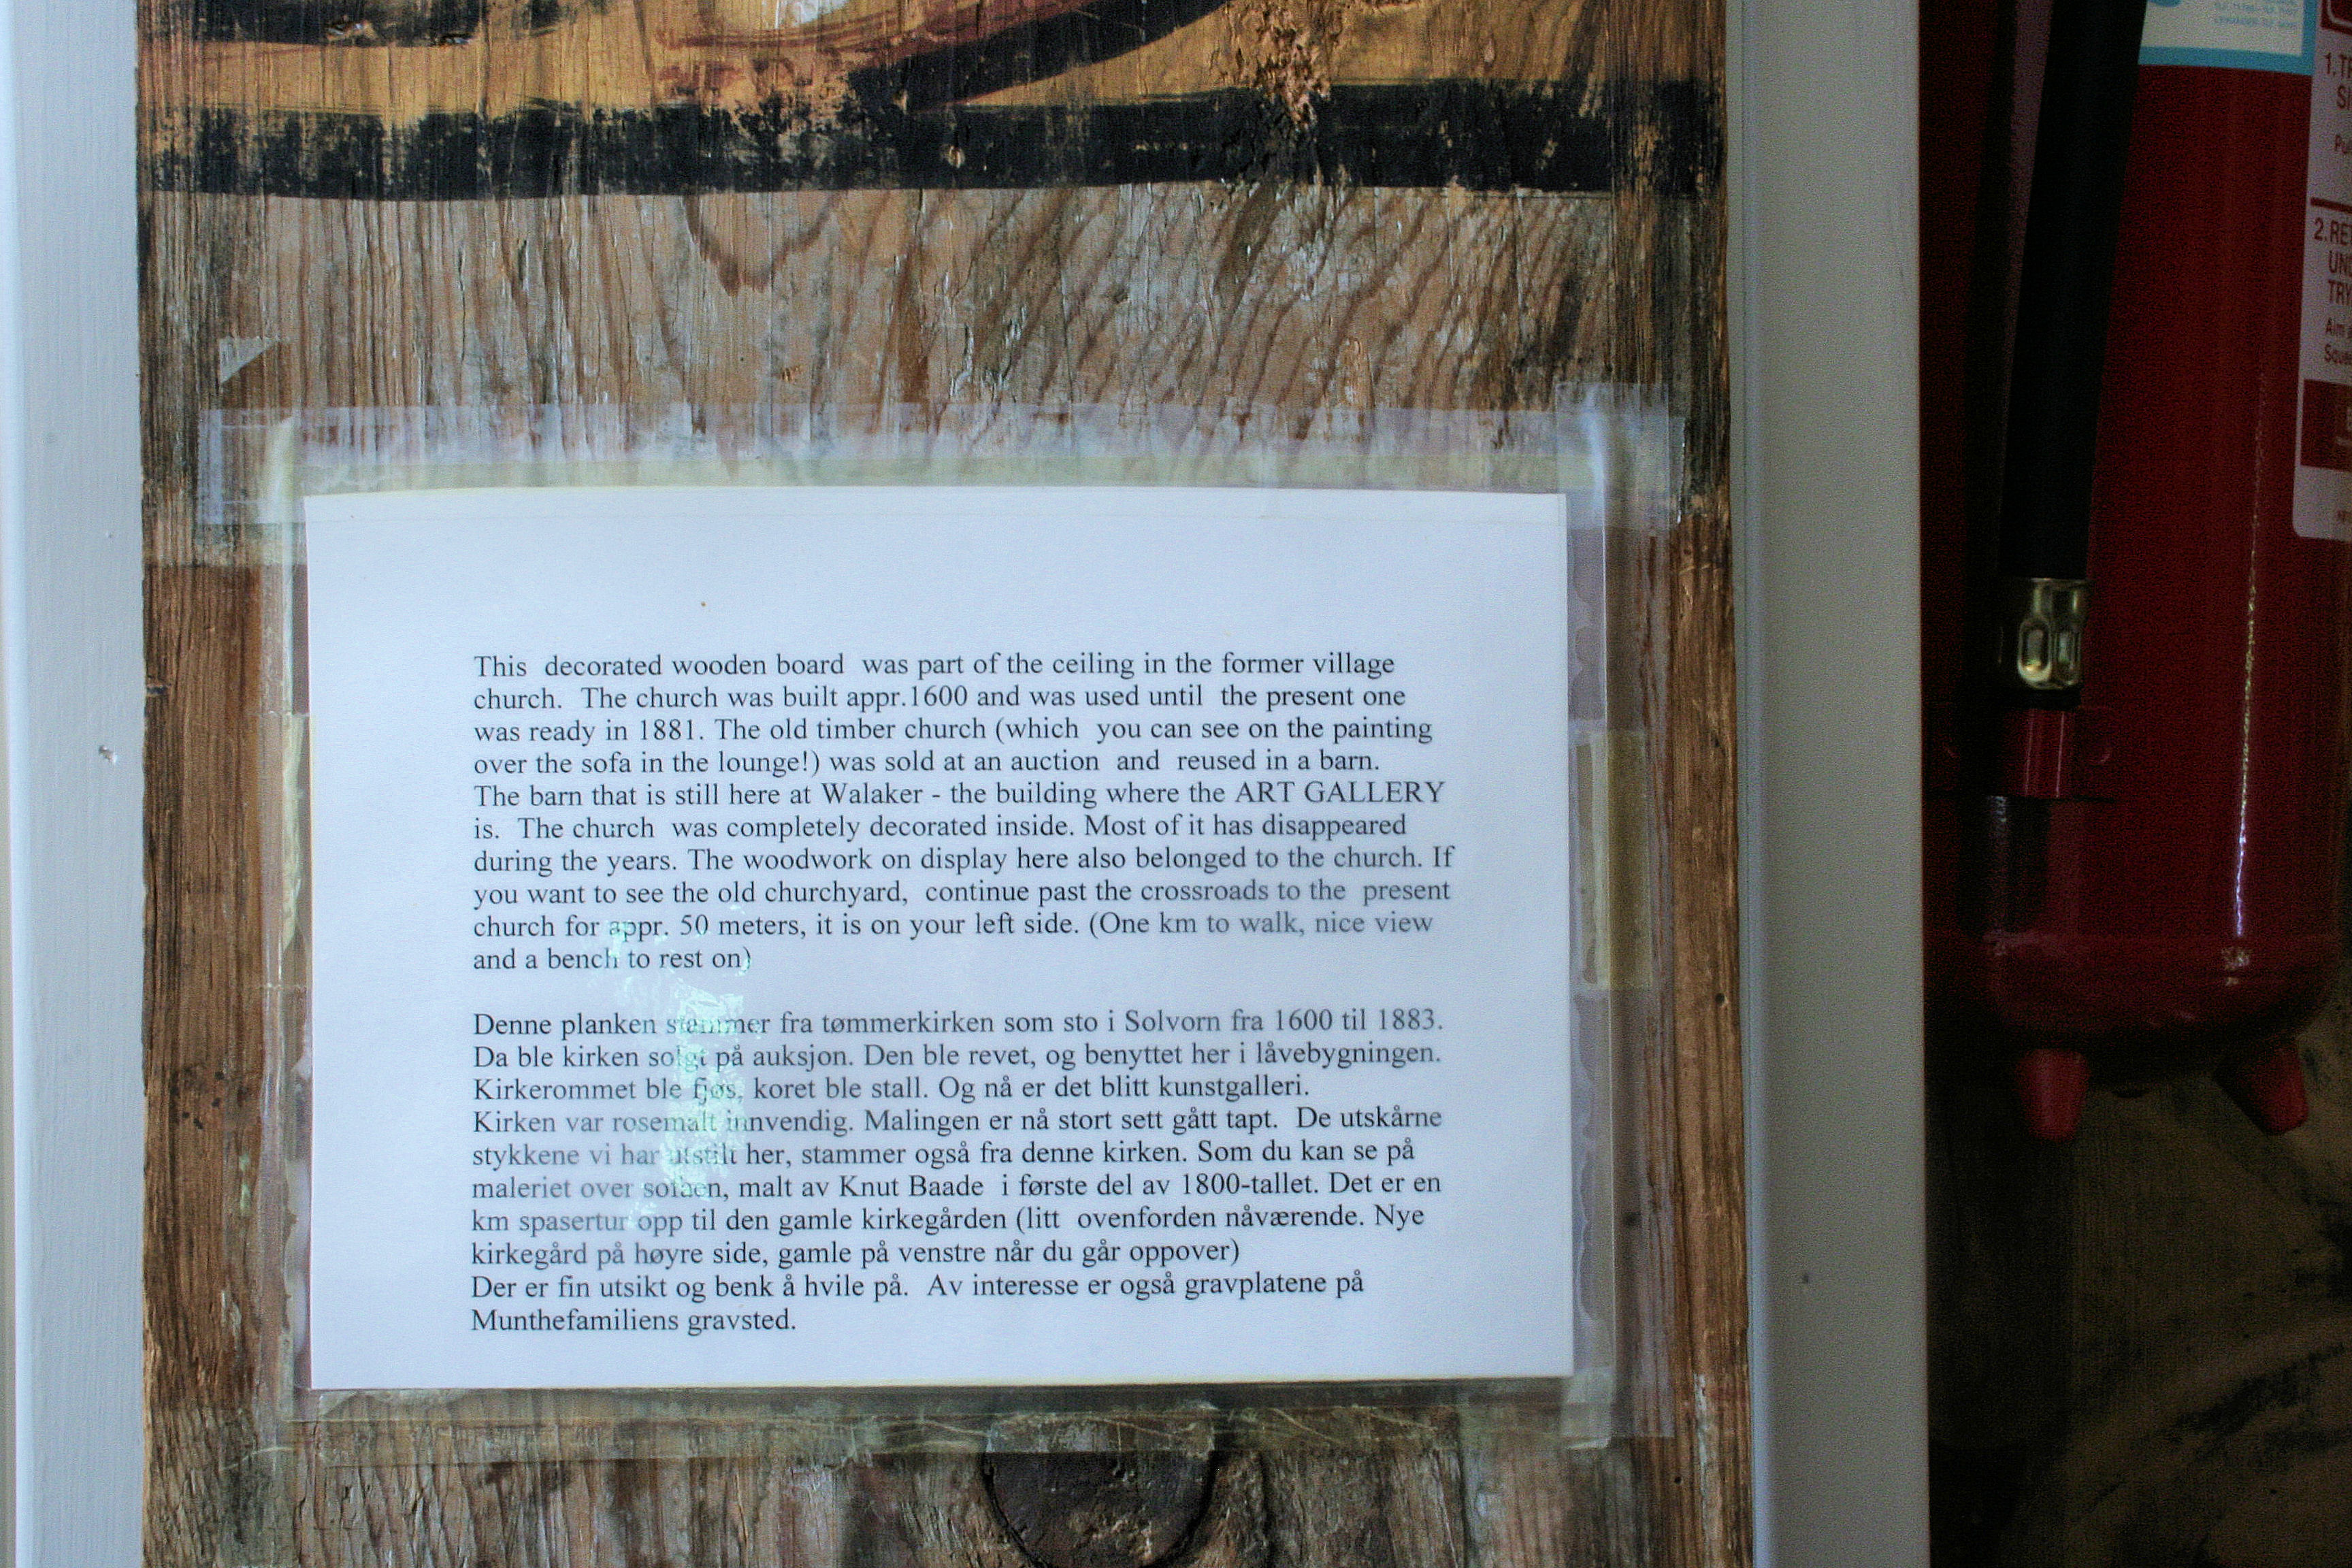 This decorated wooden board was part of the ceiling in the former village
church. The church was built appr.1600 and was used until the present one
was ready in 1881. The old timber church (which you can see on the painting
over the sofa in the lounge!) was sold at an auction and reused in a barn.
The barn that is still here at Walaker - the building where the ART GALLERY
is. The church was completely decorated inside. Most of it has disappeared
during the years. The woodwork on display here also belonged to the church. If
you want to see the old churchyard, continue past the crossroads to the present
church for appr. 50 meters, it is on your left side. (One km to walk, nice view
and a bench to rest on)
Denne planken stammer fra tømmerkirken som sto i Solvorn fra 1600 til 1883.
Da ble kirken solgt på auksjon. Den ble revet, og benyttet her i låvebygningen.
Kirkerommet ble fjøs, koret ble stall. Og nå er det blitt kunstgalleri.
Kirken var rosemalt innvendig. Malingen er nå stort sett gått tapt. De utskårne
stykkene vi har utstilt her, stammer også fra denne kirken. Som du kan se på
maleriet over sofaen, malt av Knut Baade i første del av 1800-tallet. Det er en
km spasertur opp til den gamle kirkegården (litt ovenforden nåværende. Nye
kirkegård på høyre side, gamle på venstre når du går oppover)
Der er fin utsikt og benk å hvile på. Av interesse er også gravplatene på
Munthefamiliens gravsted.
1.
2.